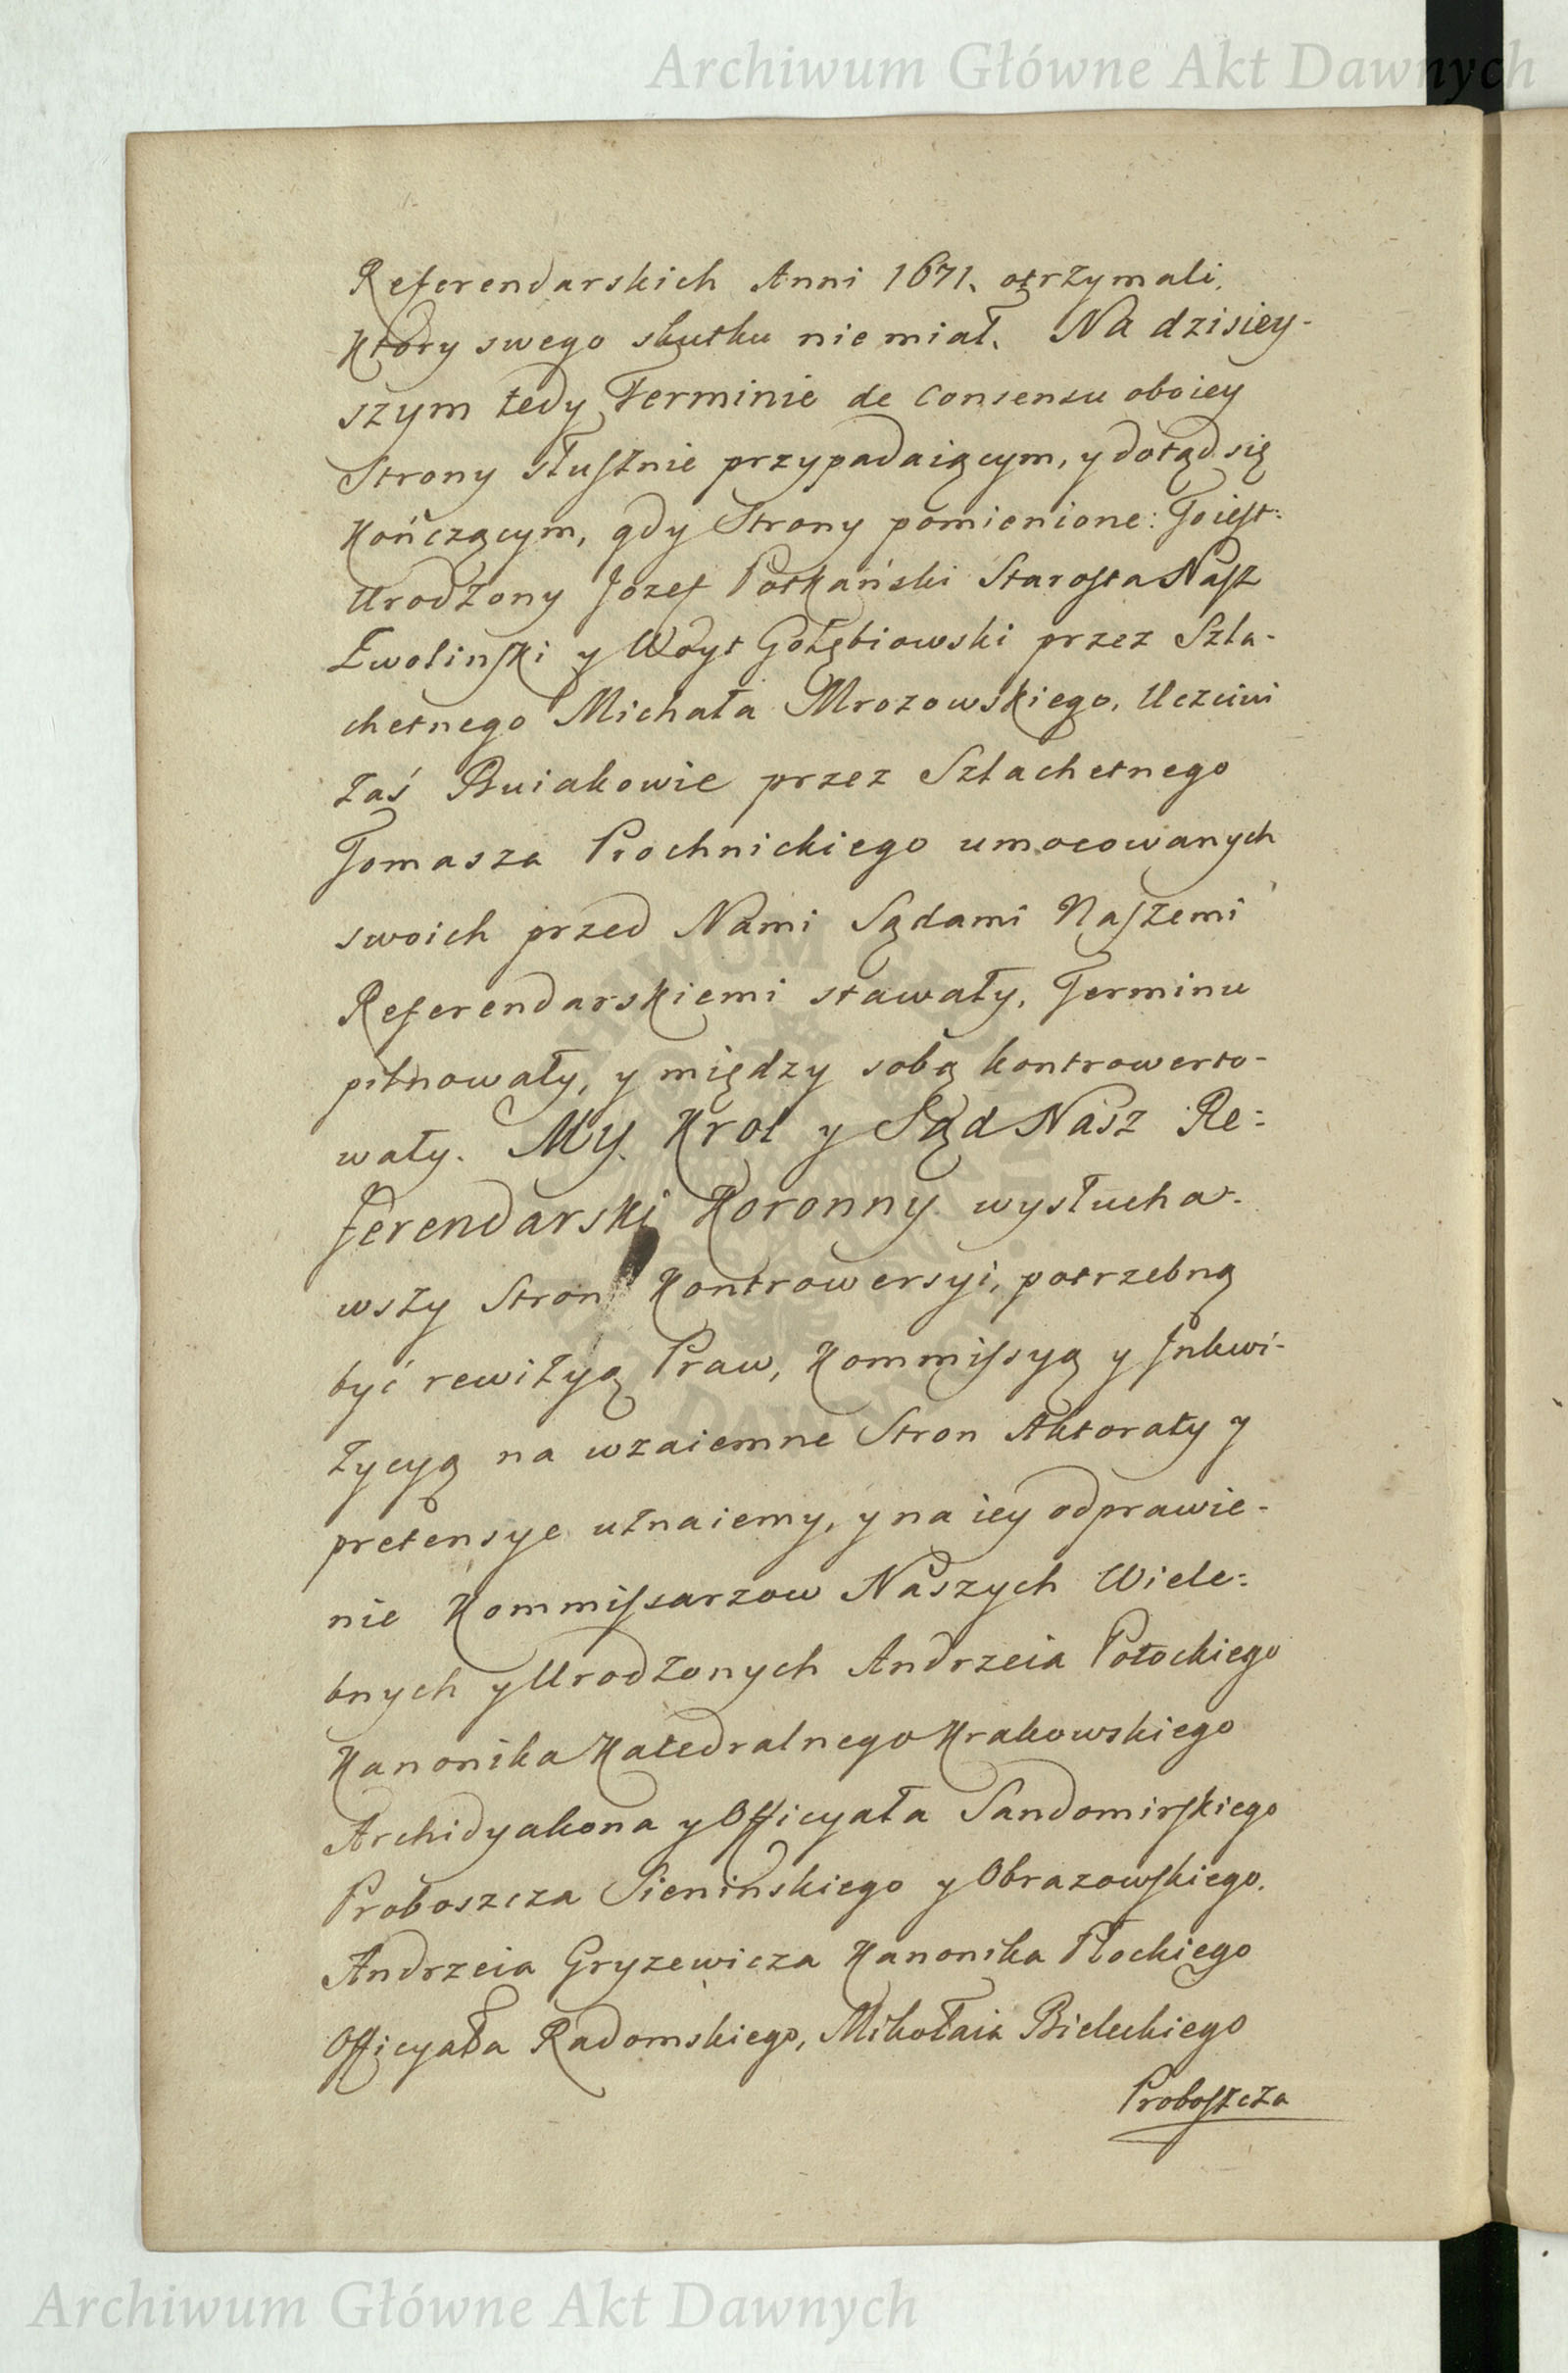 Archiwum Główne Akt Dawnych
Referendarskich Anni 1671. otrzymali,
Ktory swego skutku nie miał. Na dzisiey-
szym tedy Terminie de Consensu oboiey
Strony słusznie przypadaiącym, y dotąd się
Kończącym, gdy Strony pomienione: To iest:
Urodzony Jozef Potkański Starosta Nasz
Zwolinski y Woyt Gołębiowski przez Szla-
chetnego Michała Mrozowskiego, Uczciwi
zaś Buiakowie przez Szlachetnego
Tomasza Prochnickiego umocowanych
swoich przed Nami Sądami Naszemi
Referendarskiemi stawały, Terminu
pilnowały, y między sobą kontrowerto-
wały. My. Krol y Sąd Nasz Re-
ferendarski Koronny wysłucha-
wszy Stron Kontrowersyi, potrzebną
być rewizyą Praw, Kommissyą y Inkwi-
zycyą na wzaiemne Stron Aktoraty y
pretensye uznaiemy, y na iey odprawie-
nie Kommissarzow Naszych Wiele-
bnych y Urodzonych Andrzeia Potockiego
Kanonika Katedralnego Krakowskiego
Archidyakona y Officyała Sandomirskiego
Proboszcza Sieninskiego y Obrazowskiego,
Andrzeia Gryzewicza Kanonika Płockiego
Officyała Radomskiego, Mikołaia Bieleckiego
Proboszcza
Archiwum Główne Akt Dawnych